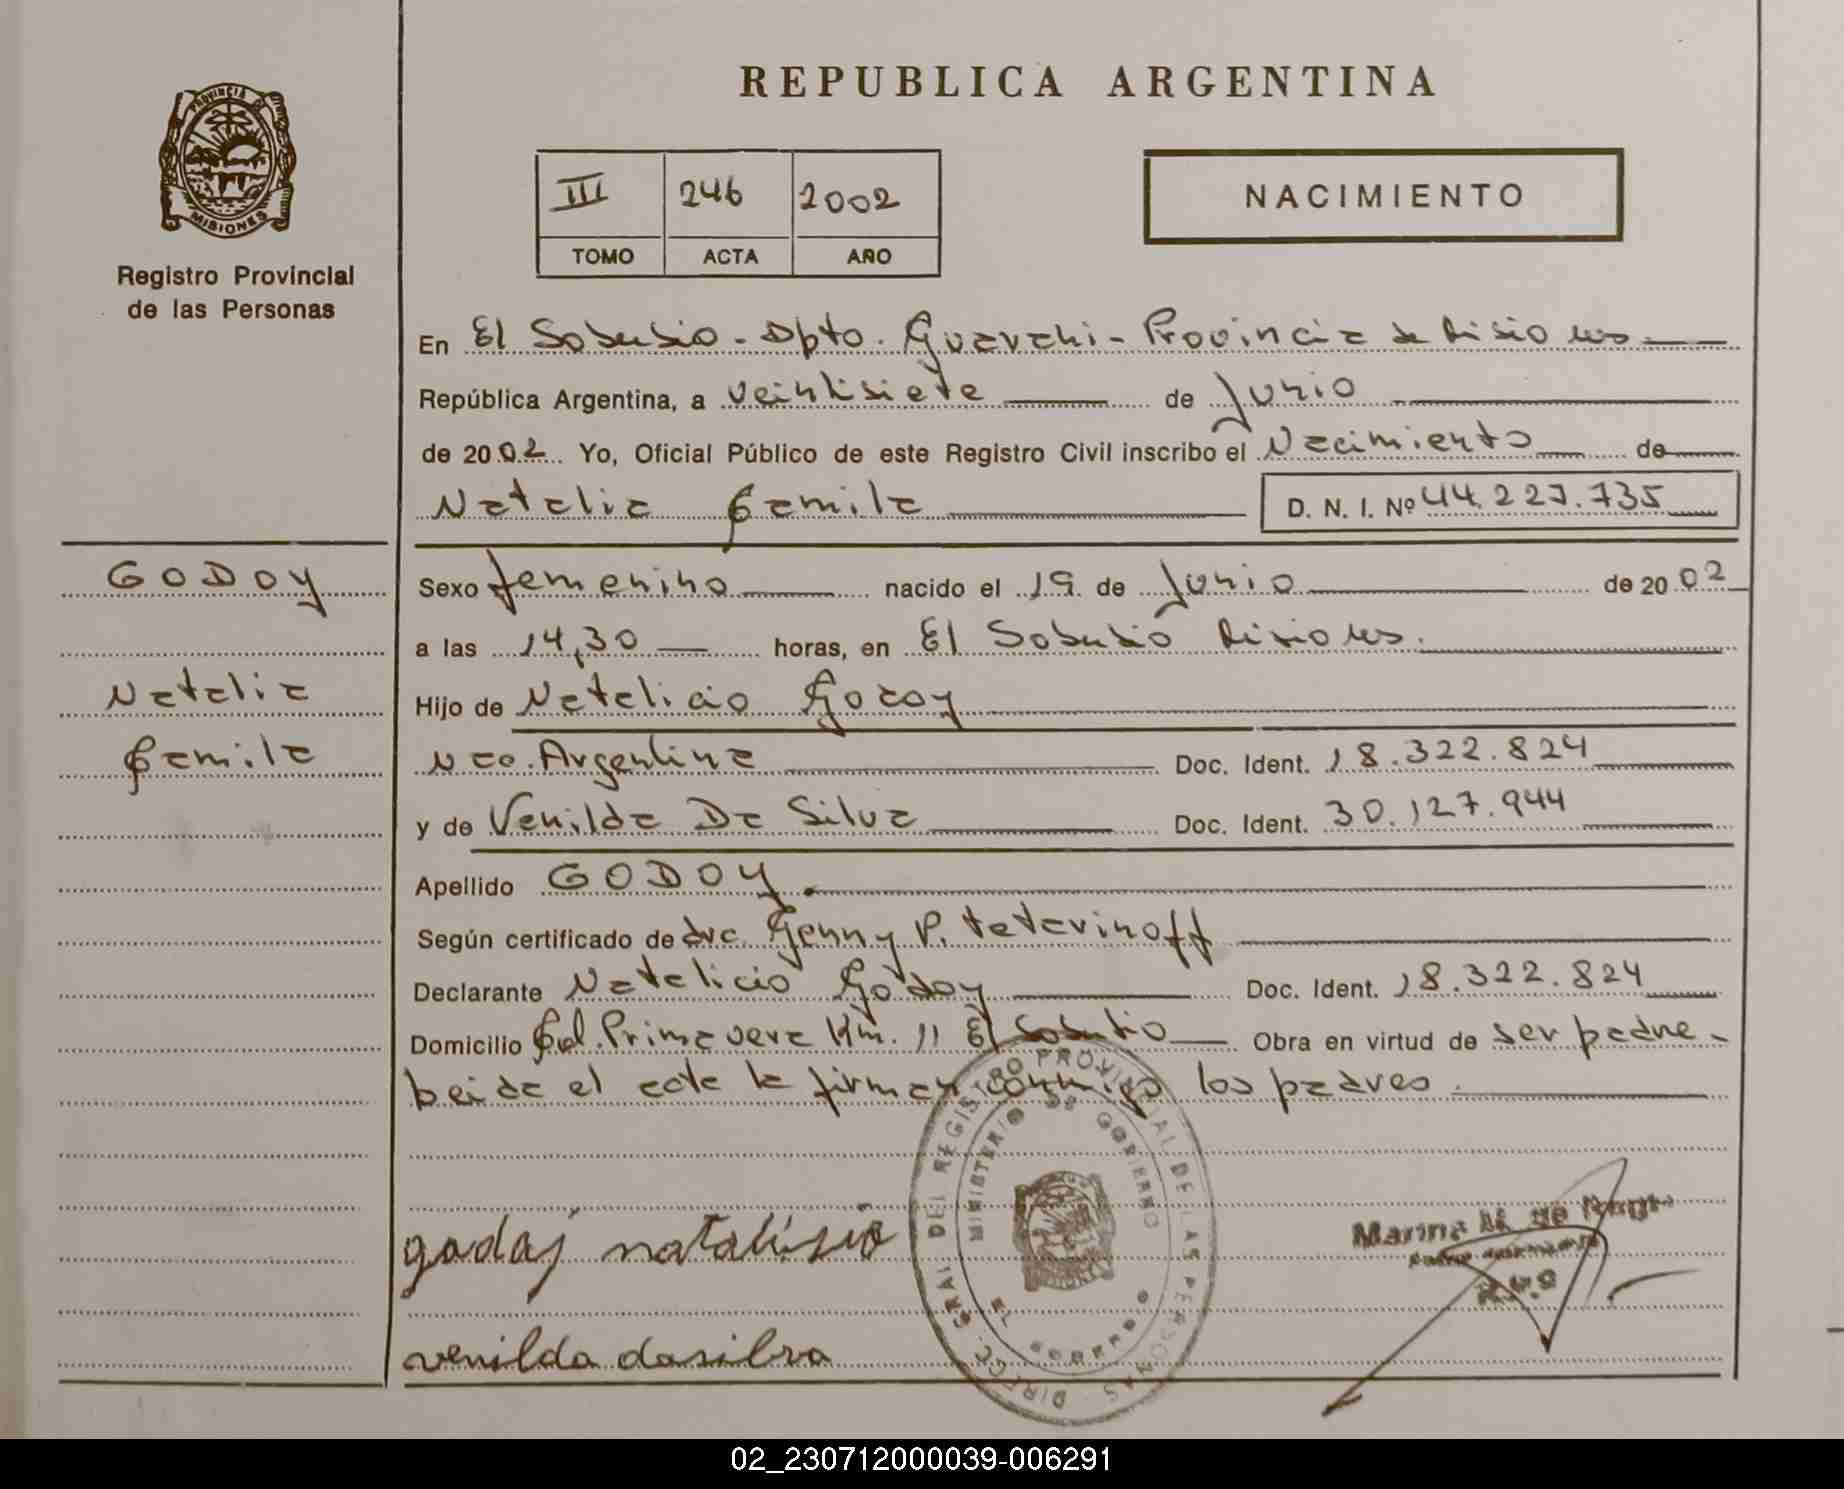 REPUBLICA ARGENTINA
PROVINCIA
MISIONES
Registro Provincial
de las Personas
III 246 2002
TOMO ACTA AÑO
NACIMIENTO
En El Soberbio - Dpto. Guarani - Provincia de Misiones
República Argentina, a veintisiete de Junio
de 2002 Yo, Oficial Público de este Registro Civil inscribo el Nacimiento de
Natalia Camila D. N. I. Nº 44.227.735
GODOY
Natalia
Camila
Sexo femenino nacido el 19 de Junio de 2002
a las 14,30 horas, en El Soberbio Misiones.
Hijo de Natalicio Godoy
Nac. Argentina Doc. Ident. 18.322.824
y de Venilda Da Silva Doc. Ident. 30.127.944
Apellido GODOY.
Según certificado de dra. Genny P. tatarinoff
Declarante Natalicio Godoy Doc. Ident. 18.322.824
Domicilio Col. Primavera Km. 11 El Soberbio Obra en virtud de ser padre-
Leida el acta la firman conmigo los padres.
DIRECC. GRAL DEL REGISTRO PROVINCIAL DE LAS PERSONAS
MINISTERIO DE GOBIERNO
EL SOBERBIO
godoj natalisio
Marina de
venilda dasilva
02_230712000039-006291